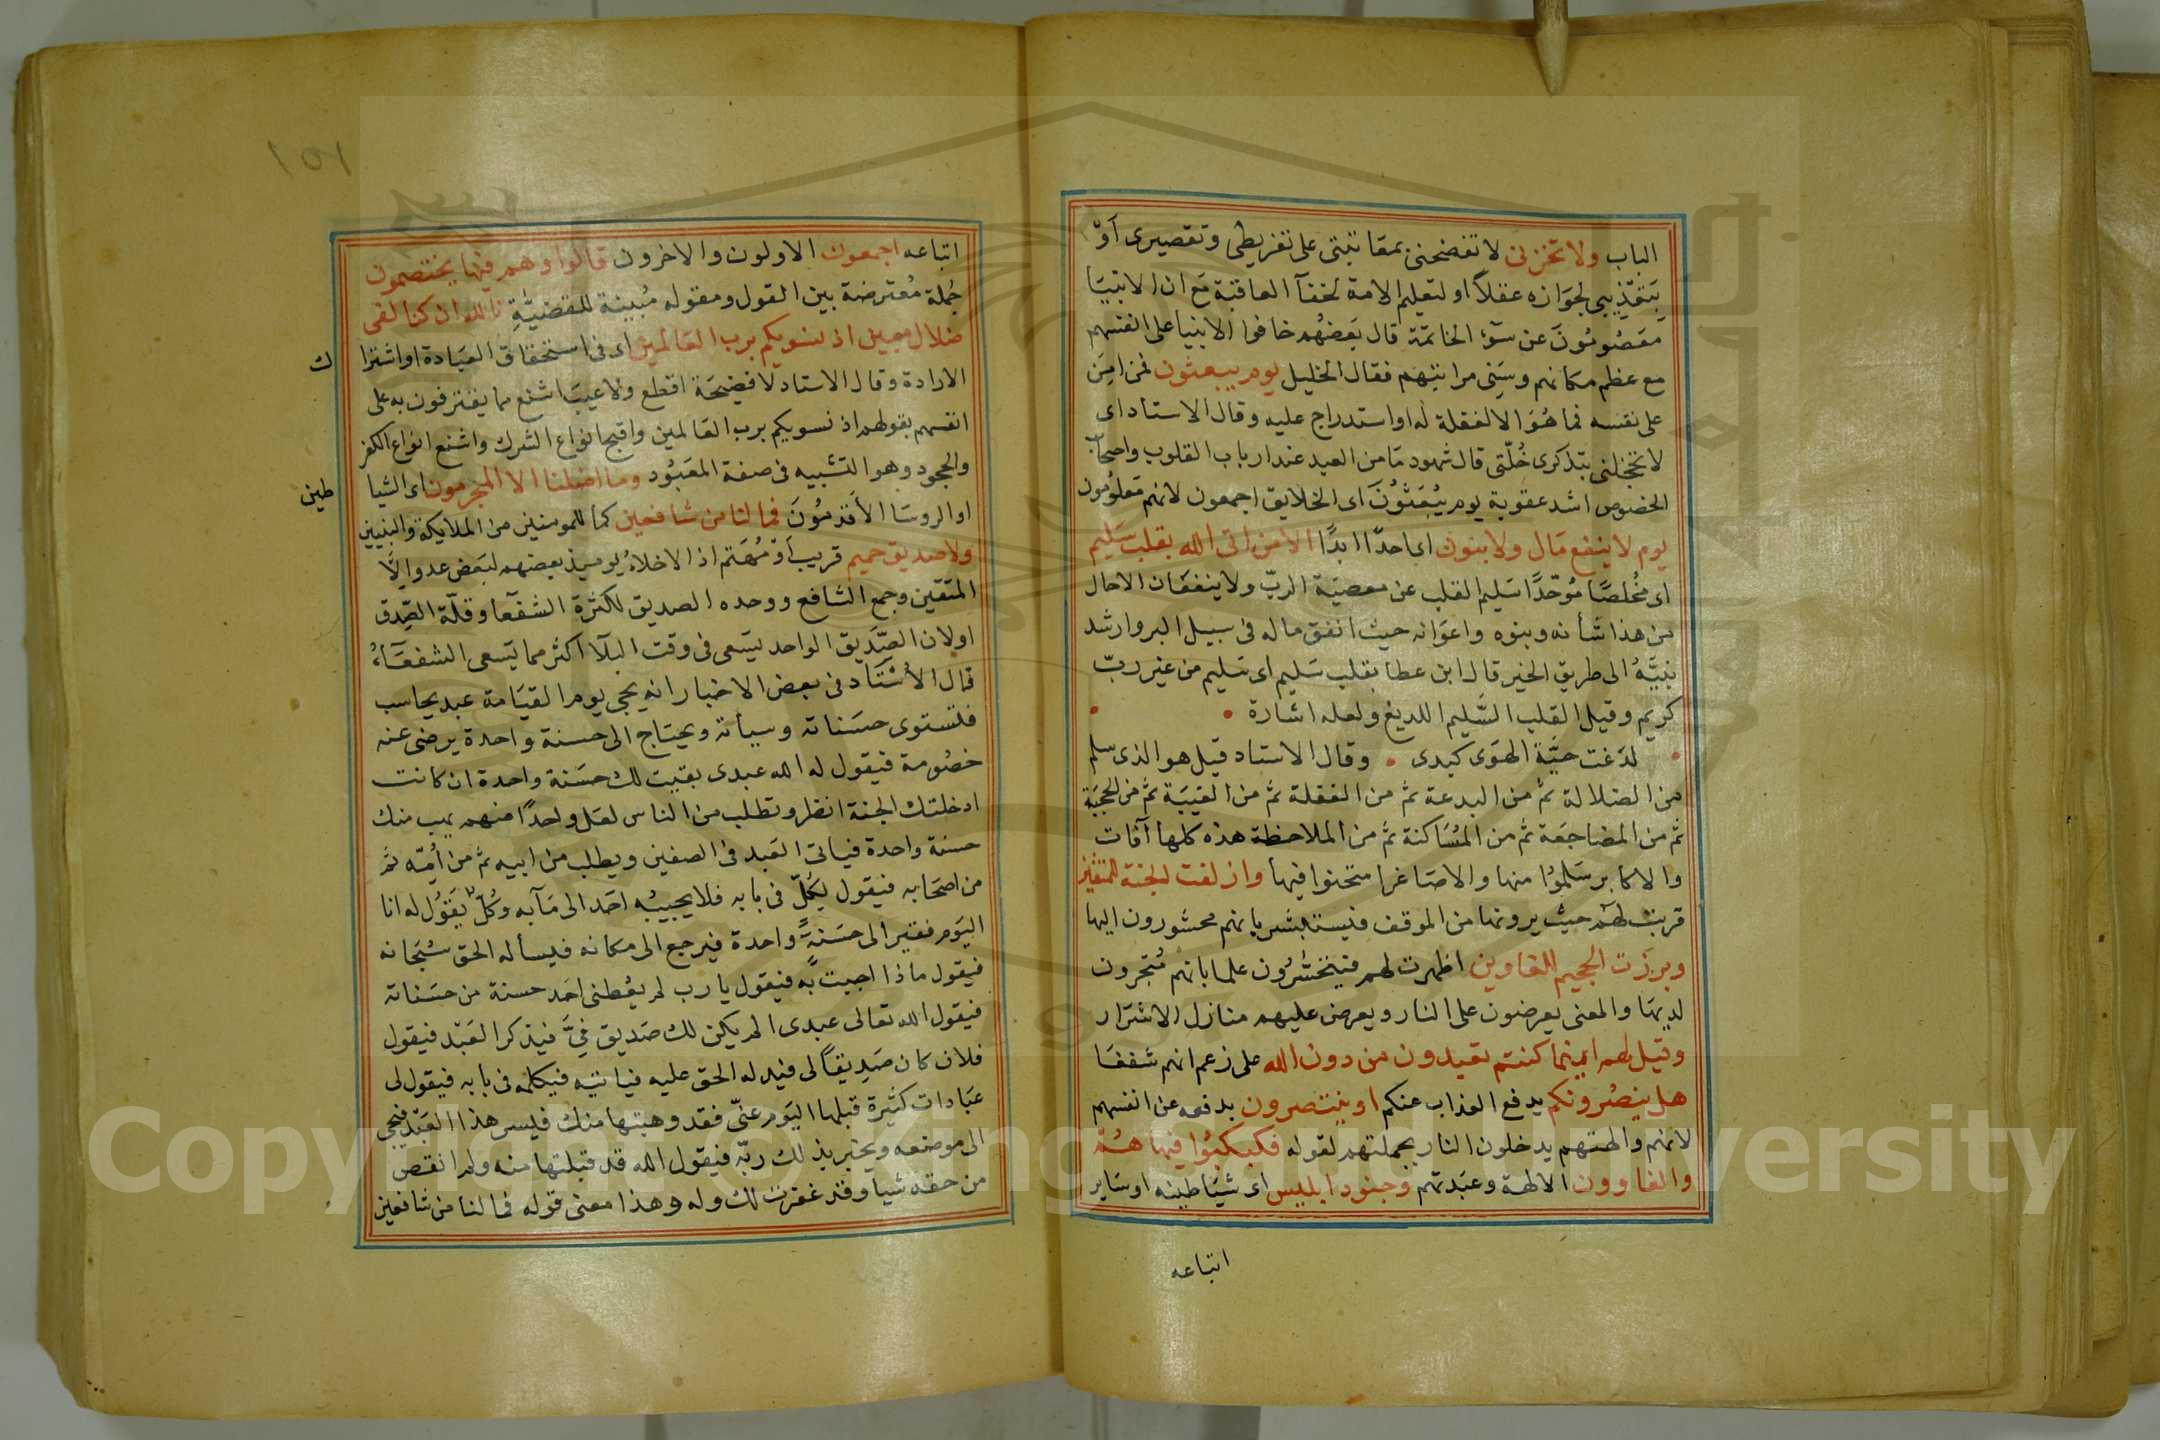 الباب ولا تخزنى لا تفضحنى بمعاتبتى على تفريطى وتقصيرى أو
بتعذيبى لجوازه عقلاً او لتعليم الامة لخفآ العاقبة مع ان الانبيا
معصومون عن سوٓء الخاتمة قال بعضهم خافوا الانبيا على انفسهم
مع عظم مكانهم وسنى مراتبهم فقال الخليل يوم يبعثون فمن امن
على نفسه فما هو الا لغفلة له او استدراج عليه وقال الاستاد اى
لا تخجلنى بتذكرى خلّتى قال شهود ما من العبد عند ارباب القلوب واصحاب
الخصوص اشد عقوبة يوم يبعثون اى الخلايق اجمعون لانهم معلومون
يوم لا ينفع مال ولا بنون اى احدًا ابدًا الا من اتى الله بقلب سليم
اى مخلصًا موّحدًا سليم القلب عن معصية الربّ ولا ينفعان الا حال
من هذا شأنه وبنوه واعوانه حيث انفق ماله فى سبيل البر وارشد
بنيه الى طريق الخير قال ابن عطا بقلب سليم اى سليم من غير ربّ
كريم وقيل القلب السّليم اللديغ ولعله اشارة
لدغت حيّة الهوى كبدى وقال الاستاد قيل هو الذى سلم
من الضلالة ثم من البدعة ثم من الغفلة ثم من الغيبة ثم من الحجبة
ثم من المضاجعة ثم من المساكنة ثم من الملاحظة هذه كلها آفات
والاكابر سلموا منها والاصاغرا متحنوا فيها وازلفت الجنة للمتقين
قربت لهم حيث يرونها من الموقف فيستبشر بانهم محشورون اليها
وبرزت الجحيم للغاوين اظهرت لهم فيتحسّرون علما بانهم متجرون
لديها والمعنى يعرضون على النار ويعرض عليهم منازل الاشرار
وقيل لهم اينما كنتم تعبدون من دون الله على زعم انهم شفعا
هل ينصرونكم يدفع العذاب عنكم او ينتصرون بدفعه عن انفسهم
لانهم والهتهم يدخلون النار بجملتهم لقوله فكبكبوا فيها هم
والغاوون الالهة وعبدتهم وجنود ابليس اى شياطينه او ساير
اتباعه
١٥١
اتباعه اجمعون الاولون والاخرون قالوا وهم فيها يختصمون
جملة معترضة بين القول ومقوله مبينة للقضيّة تالله ان كنا لفى
ضلال مبين اذ نسويكم برب العالمين اى فى استحقاق العبادة او اشترا
ك
الارادة وقال الاستاد لا فضيحة افظع ولا عيب اشنع مما يغترفون به على
انفسهم بقولهم اذ نسويكم برب العالمين واقبح انواع الشرك واشنع انواع الكفر
والجحود وهو التشبيه فى صفة المعبود وما اضلنا الا المجرمون اى الشيا
طين
او الروسا الأقدمون فما لنا من شافعين كما للمومنين من الملايكة والنبيين
ولا صديق حميم قريب او مهتم اذ الاخلاء يوميذ بعضهم لبعض عدو الا
المتقين وجمع الشافع ووحده الصديق لكثرة الشفعا وقلّة الصّدق
او لان الصّديق الواحد يسعى فى وقت البلآ اكثر مما يسعى الشفعآء
قال الأستاد فى بعض الاخبار انه يجى يوم القيامة عبد يحاسب
فتستوى حسناته وسيأته ويحتاج الى حسنة واحدة يرضى عنه
خصومة فيقول له الله عبدى بقيت لك حسنة واحدة ان كانت
ادخلتك الجنة انظر وتطلب من الناس لعل واحدًا منهم يهب منك
حسنة واحدة فياتى العبد فى الصفين ويطلب من ابيه ثم من أمّه ثم
من اصحابه فيقول لكلّ فى بابه فلا يجيبه احد الى مآبه وكلّ يقول له انا
اليوم فقير الى حسنةٍ واحدة فيرجع الى مكانه فيسأله الحق سبحانه
فيقول ماذا اجبت به فيقول يا رب لم يعطنى احد حسنة من حسناته
فيقول الله تعالى عبدى الم يكن لك صديق فىّ فيذكر العبد فيقول
فلان كان صديقًا لى فيدله الحق عليه فياتيه فيكلمه فى بابه فيقول لى
عبادات كثيرة قبلها اليوم عنّى فقد وهبتها منك فيسر هذا العبد فيجى
الى موضعه ويخبر بذلك ربّه فيقول الله قد قبلتها منه ولم انقص
من حقه شيا وقد غفرت لك وله وهذا معنى قوله فما لنا من شافعين
Copyright © King Saud University